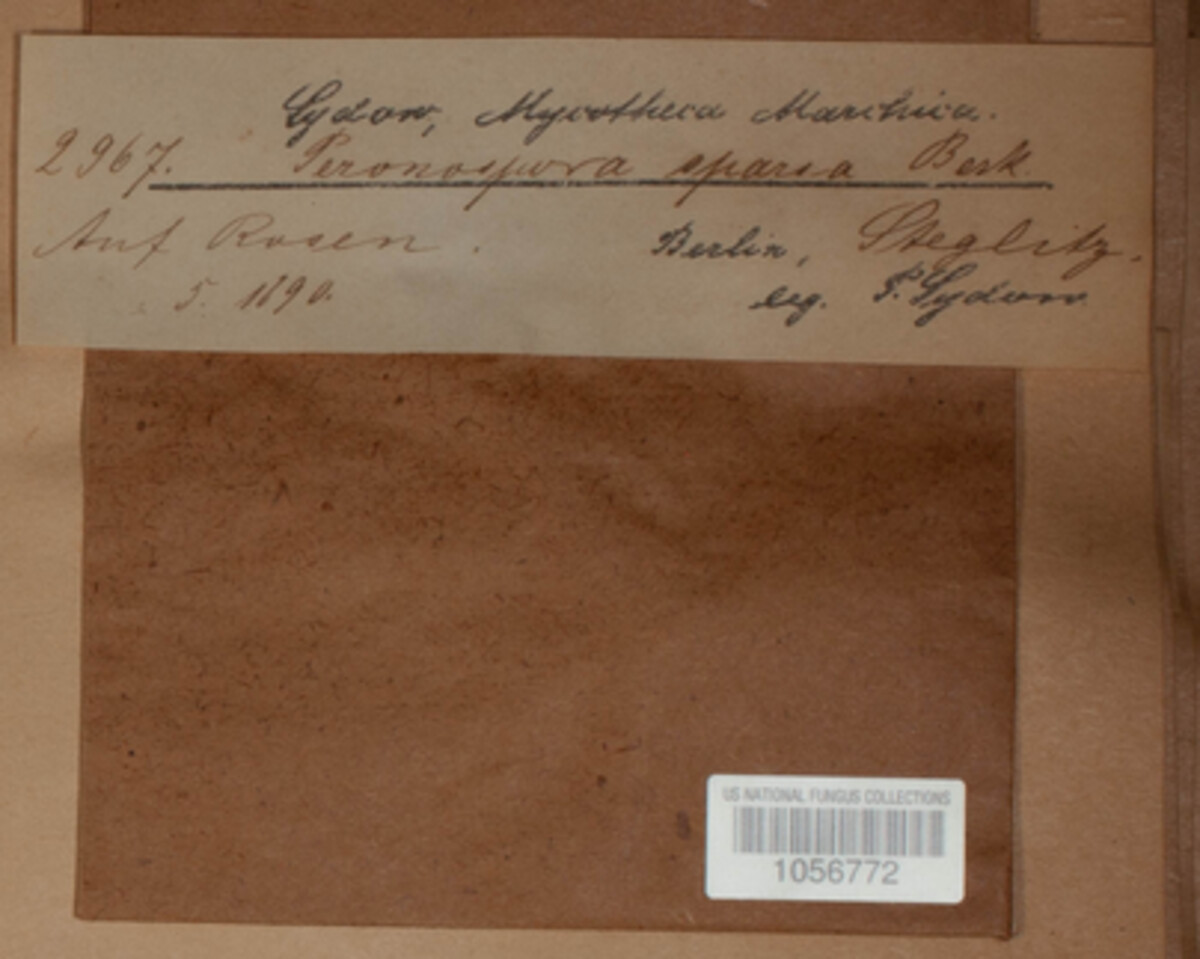 Sydow, Mycotheca Marchica.
2967. Peronospora sparsa Berk.
Auf Rosen. Berlin, Steglitz.
5. 1890. leg. P. Sydow
US NATIONAL FUNGUS COLLECTIONS
1056772